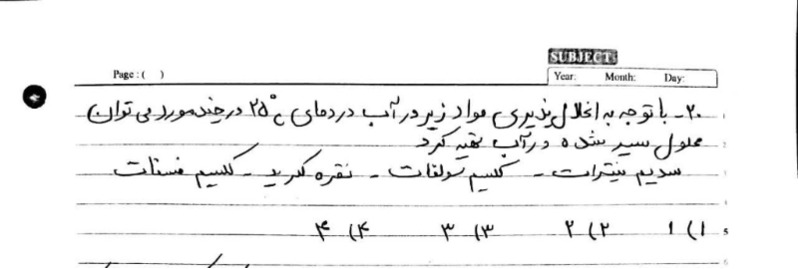 SUBJECT:
Page: ( )
Year: Month: Day:
۲۰- با توجه به انحلال پذیری مواد زیر در آب در دمای ۲۵°c در چند مورد می توان
محلول سیر شده در آب تهیه کرد
سدیم نیترات - کلسیم سولفات - نقره کلرید - کلسیم فسفات
۱) ۱ ۲) ۲ ۳) ۳ ۴) ۴